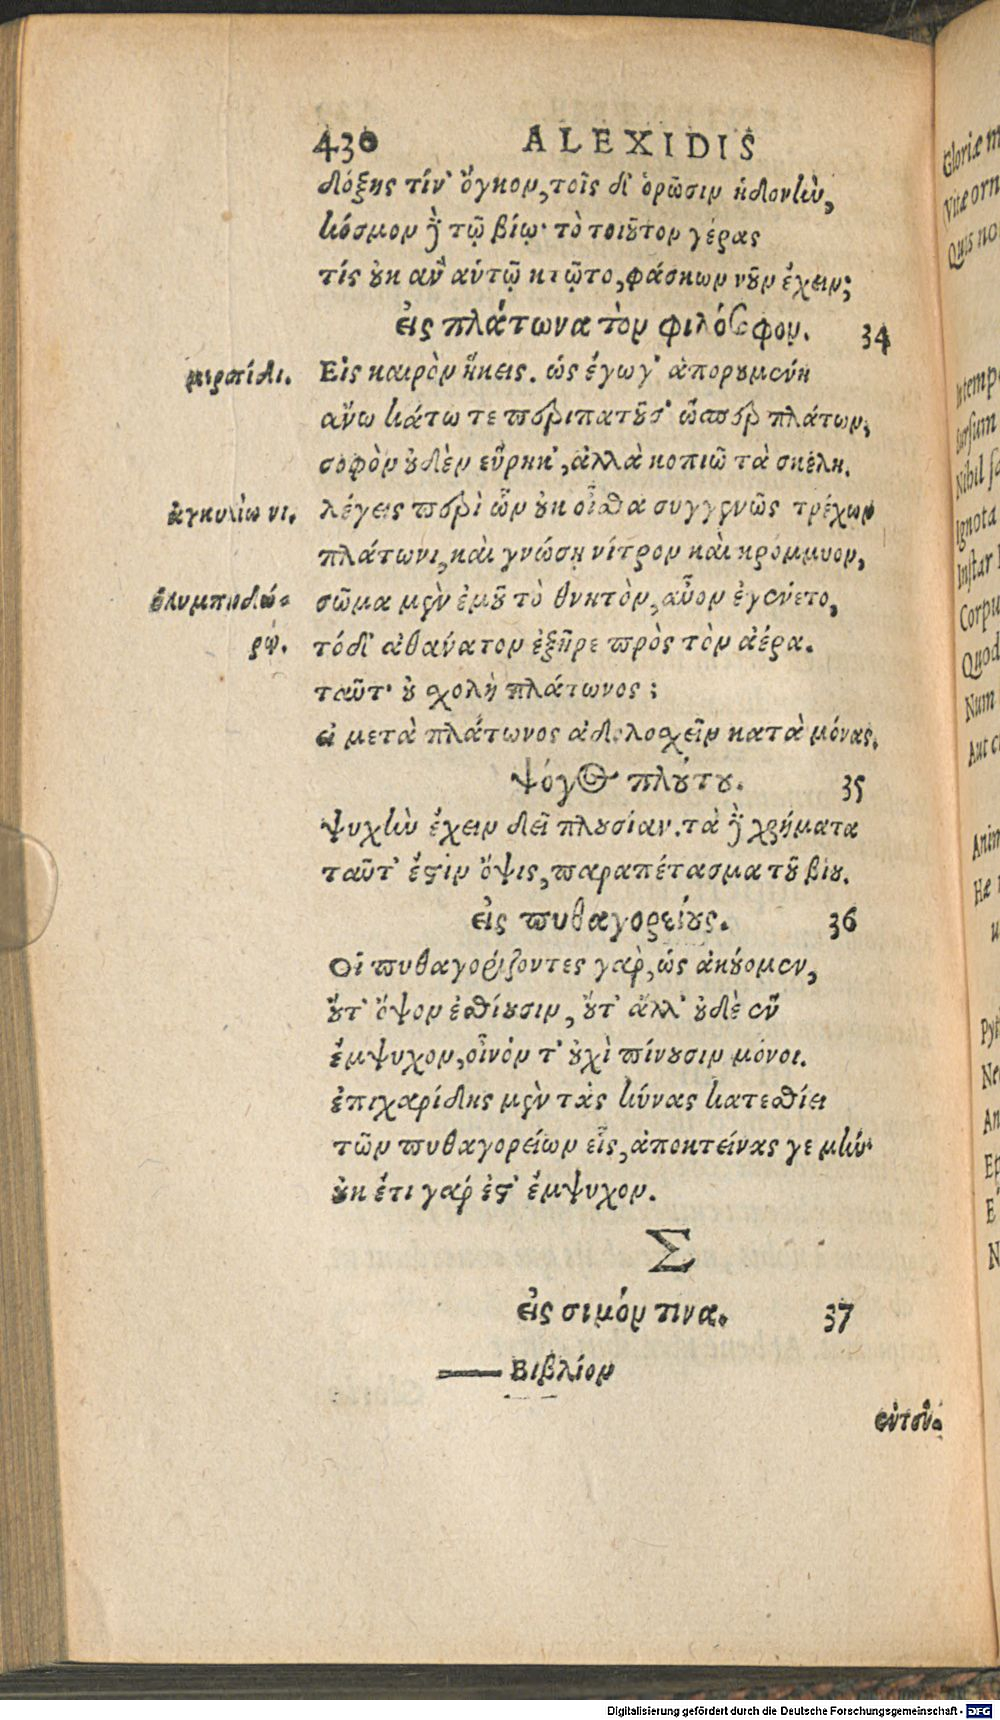 430 ALEXIDIS
δόξης τίν' ὄγκον, τοῖς δ' ὁρῶσιν ἡδονὴν,
κόσμον δὲ τῷ βίῳ· τὸ τοιοῦτον γέρας
τίς οὐκ ἂν αὑτῷ κτῷτο, φάσκων νοῦν ἔχειν;
εἰς πλάτωνα τὸν φιλόσοφον. 34
μεροπίδι. Εἰς καιρὸν ἥκεις. ὡς ἔγωγ' ἀπορουμένη
ἄνω κάτω τε περιπατοῦσ' ὥσπερ πλάτων,
σοφὸν οὐδὲν εὕρηκ', ἀλλὰ κοπιῶ τὰ σκέλη.
ἀγκυλίωνι. λέγεις περὶ ὧν οὐκ οἶσθα συγγενῶς τρέχων
πλάτωνι, καὶ γνώσῃ νίτρον καὶ κρόμμυον,
ὀλυμπιοδώ- σῶμα μὲν ἐμοῦ τὸ θνητὸν, αὖον ἐγένετο,
ρῳ. τόδ' ἀθάνατον ἐξῆρε πρὸς τὸν ἀέρα.
ταῦτ' οὐ σχολὴ πλάτωνος;
εἰ μετὰ πλάτωνος ἀδολοσχεῖν κατὰ μόνας.
ψόγος πλούτου. 35
ψυχὴν ἔχειν δεῖ πλουσίαν. τὰ δὲ χρήματα
ταῦτ' ἔστιν ὄψις, παραπέτασμα τοῦ βίου.
εἰς πυθαγορείους. 36
Οἱ πυθαγορίζοντες γὰρ, ὡς ἀκούομεν,
οὔτ' ὄψον ἐσθίουσιν, οὔτ' ἄλλ' οὐδὲ ἓν
ἔμψυχον, οἶνόν τ' οὐχὶ πίνουσιν μόνοι.
ἐπιχαρίδης μὲν τὰς κύνας κατεσθίει
τῶν πυθαγορείων εἷς, ἀποκτείνας γε μὴν·
οὐκ ἔτι γάρ ἐστ' ἔμψυχον.
Σ
εἰς σιμόν τινα. 37
—— Βιβλίον
ἐντεῦ-
Gloriæ
Vitæ orn
Quis no
Intemp
Nihil
Ignota
Instar
Corpu
Quod
Num
Aut
Anim
Digitalisierung gefördert durch die Deutsche Forschungsgemeinschaft - DFG